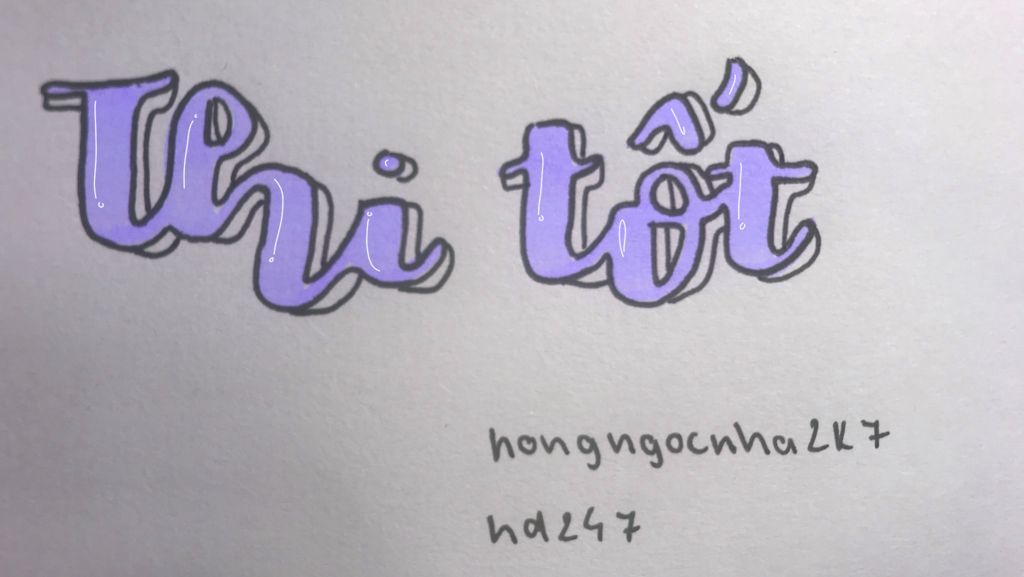 Thi tốt
hongngocnha2k7
hd247